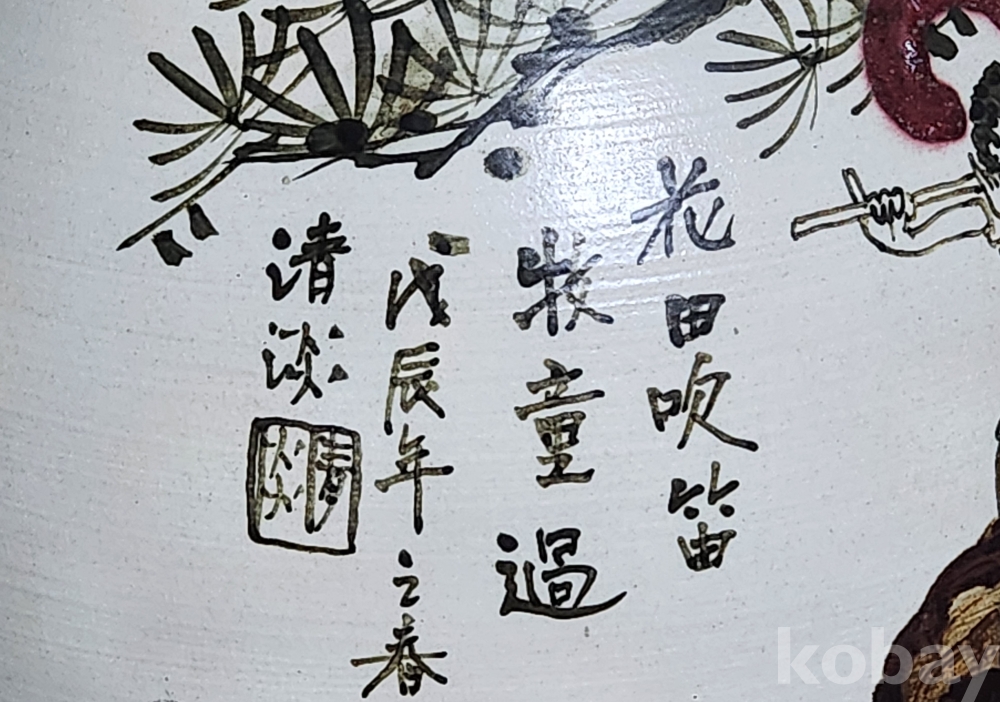 花田吹笛
牧童過
戊辰年之春
清淡
清淡
kobay